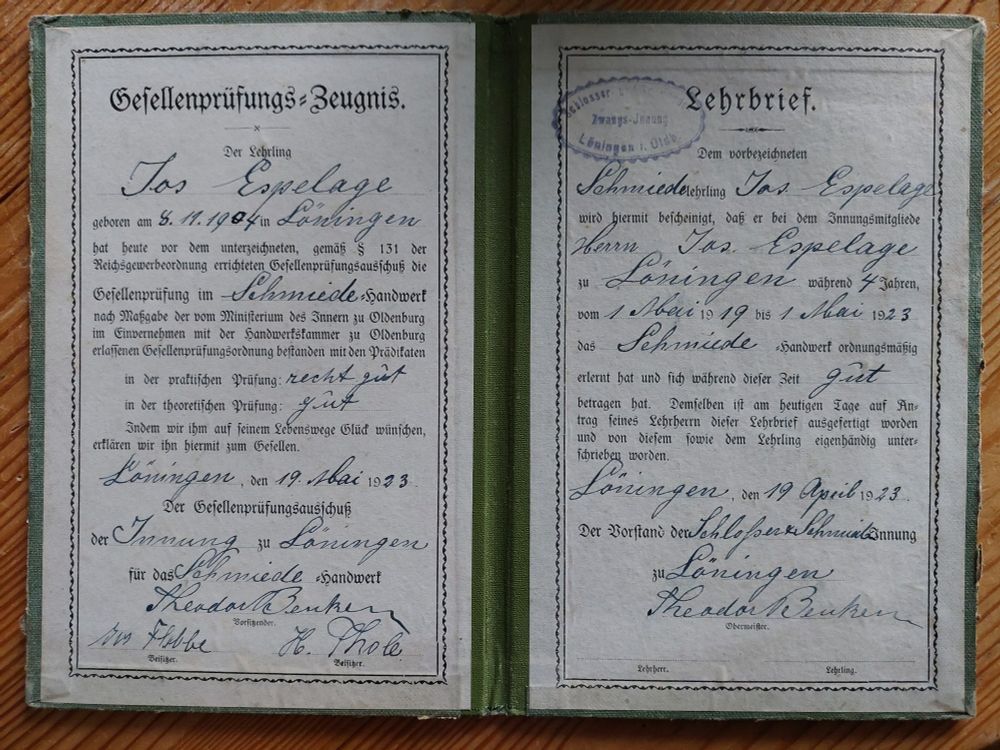 Gesellenprüfungs-Zeugnis.
Der Lehrling
Jos Espelage
geboren am 8.11.1904 in Löningen
hat heute vor dem unterzeichneten, gemäß § 131 der
Reichsgewerbeordnung errichteten Gesellenprüfungsausschuß die
Gesellenprüfung im Schmiede-Handwerk
nach Maßgabe der vom Ministerium des Innern zu Oldenburg
im Einvernehmen mit der Handwerkskammer zu Oldenburg
erlassenen Gesellenprüfungsordnung bestanden mit den Prädikaten
in der praktischen Prüfung: recht gut
in der theoretischen Prüfung: gut
Indem wir ihm auf seinem Lebenswege Glück wünschen,
erklären wir ihn hiermit zum Gesellen.
Löningen, den 19. Mai 1923.
Der Gesellenprüfungsausschuß
der Innung zu Löningen
für das Schmiede-Handwerk
Theodor Benken
Vorsitzender.
Flobbe H. Thole
Beisitzer. Beisitzer.
Schlosser-
Zwangs-Innung
Löningen i. Oldb.
Lehrbrief.
Dem vorbezeichneten
Schmiedelehrling Jos. Espelage
wird hiermit bescheinigt, daß er bei dem Innungsmitgliede
Herrn Jos. Espelage
zu Löningen während 4 Jahren,
vom 1 Mai 1919 bis 1 Mai 1923
das Schmiede-Handwerk ordnungsmäßig
erlernt hat und sich während dieser Zeit gut
betragen hat. Demselben ist am heutigen Tage auf An-
trag seines Lehrherrn dieser Lehrbrief ausgefertigt worden
und von diesem sowie dem Lehrling eigenhändig unter-
schrieben worden.
Löningen, den 19 April 1923.
Der Vorstand der Schlosser & Schmiede Innung
zu Löningen
Theodor Benken
Obermeister.
Lehrherr. Lehrling.